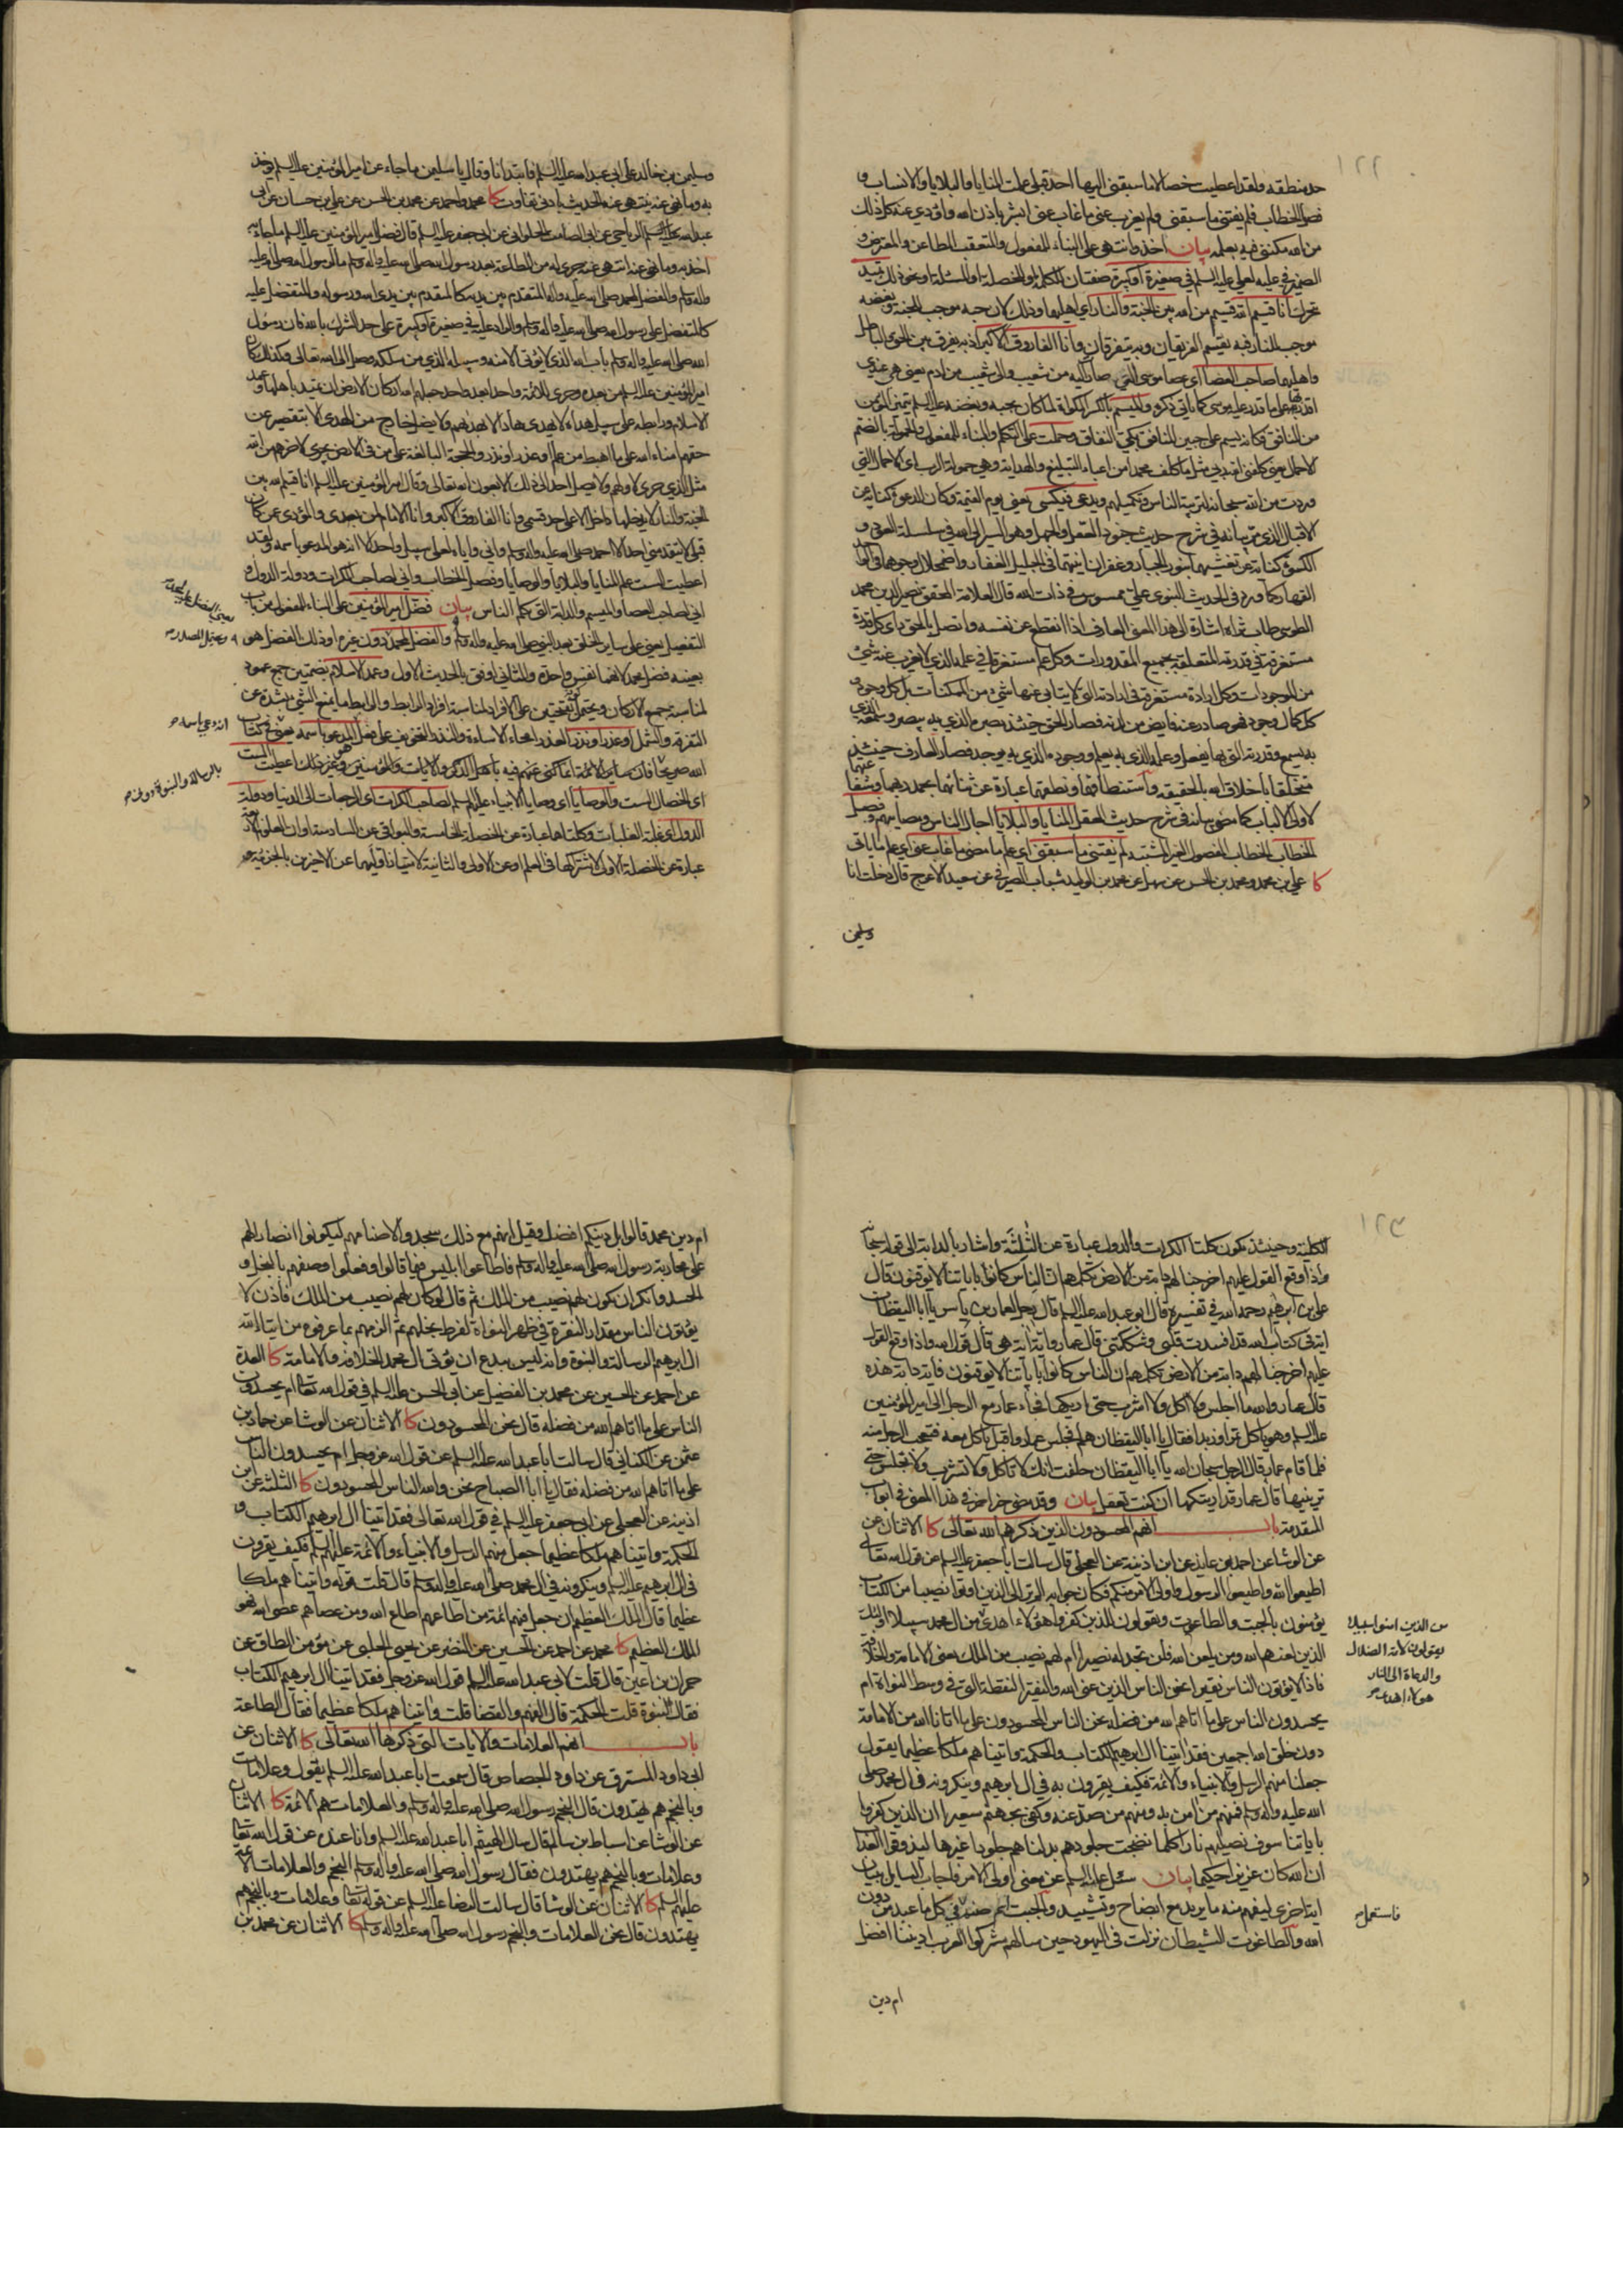 ١٢٢
حد منطقه ولقد اعطيت خصالا ما سبقني اليها احد قبلي علمت المنايا والبلايا والانساب و
فصل الخطاب فلم يفتني ما سبقني ولم يعزب عني ما غاب عني ابشر باذن الله واؤدي عنه كل ذلك
من الله مكنني فيه بعلمه بيان اخذ وانتهى على البناء للمفعول والمتعقب الطاعن والمعترض و
الضمير في عليه لعلي عليه السلم في صغيرة او كبيرة صفتان للكلمة او الخصلة او المسئلة او نحو ذلك تميد
تحرك انا قسيم الله قسيم من الله بين الجنة والنار اي اهليهما وذلك لان حبه موجب للجنة وبغضه
موجب للنار فبه يقسم الفريقان وبه يتفرقان وانا الفاروق الاكبر اذ به يفرق بين الحق والباطل
واهليهما صاحب العصا اي عصا موسى التي صار اليه من شعيب والى شعيب من ادم يعني هي عندي
اقدر بها على ما قدر عليه موسى كما ياتي ذكره والميسم بالكسر المكواة لما كان بحبه وبغضه عليه السلم يتميز المؤمن
من المنافق فكانه يسم على جبين المنافق بكي النفاق وحملت على التكلم والبناء للمفعول والحمولة بالضم
الاحمال يعني كلفني الله ربي مثل ما كلف محمدا من اعباء التبليغ والهداية وهي حمولة الرب اي الاحمال التي
وردت من الله سبحانه لتربية الناس وتكميلهم ويدعى فيكسى يعني يوم القيمة وكان الدعوة كناية عن
الاقبال الذي مر بيانه في شرح حديث جنود العقل والجهل وهو السير الى الله في سلسلة العود و
الكسوة كناية عن تغشيهما بنور الجبار وغفران انيتهما في الجليل الغفار واضمحلال وجودهما في الواحد
القهار كما ورد في الحديث النبوي علي ممسوس في ذات الله قال العلامة المحقق نصير الدين محمد
الطوسي طاب ثراه اشارة الى هذا المعنى العارف اذا انقطع عن نفسه واتصل بالحق راى كل قدرة
مستغرقة في قدرته المتعلقة بجميع المقدورات وكل علم مستغرقا في علمه الذي لا يعزب عنه شئ
من الموجودات وكل ارادة مستغرقة في ارادته التي لا يتابى عنها شئ من الممكنات بل كل وجود و
كل كمال وجود فهو صادر عنه فايض من لدنه فصار الحق حينئذ بصره الذي به يبصر وسمعه الذي
به يسمع وقدرته التي بها يفعل وعلمه الذي به يعلم ووجوده الذي به يوجد فصار العارف حينئذ
متخلقا باخلاق الله بالحقيقة واستنطاقهما ونطقهما عبارة عن ثنائهما بحمد ربهما وشفاعتهما
لاولي الالباب كما مضى بيانه في شرح حديث العقل المنايا والبلايا اجال الناس ومصايبهم وفصل
الخطاب الخطاب المفصول الغير المشتبه لم يفتني ما سبقني اي علم ما مضى ما غاب عني اي علم ما ياتي
كا علي بن محمد ومحمد بن الحسن عن سهل عن محمد بن الوليد شباب الصيرفي عن سعيد الاعرج قال دخلت انا
وسليمن
وسليمن بن خالد على ابي عبد الله عليه السلم فابتدانا وقال يا سليمن ما جاء عن امير المؤمنين عليه السلم يؤخذ
به وما نهى عنه ينتهى عنه الحديث بادنى تفاوت كا محمد واحمد عن محمد بن الحسن عن علي بن حسان عن ابي
عبد الله الرياحي عن ابي الصامت الحلواني عن ابي جعفر عليه السلم قال فضل امير المؤمنين عليه السلم ما جاء به
اخذ به وما نهى عنه انتهى عنه جرى له من الطاعة بعد رسول الله صلى الله عليه واله وسلم ما لرسول الله صلى الله عليه
واله وسلم والفضل لمحمد صلى الله عليه واله المتقدم بين يديه كالمتقدم بين يدي الله ورسوله والمتفضل عليه
كالمتفضل على رسول الله صلى الله عليه واله وسلم والراد عليه في صغيرة او كبيرة على حد الشرك بالله فان رسول
الله صلى الله عليه واله وسلم باب الله الذي لا يؤتى الا منه وسبيله الذي من سلكه وصل الى الله تعالى وكذلك كان
امير المؤمنين عليه السلم من بعده وجرى للائمة واحدا بعد واحد جعلهم الله اركان الارض ان تميد باهلها وعمد
الاسلام ورابطه على سبيل هداه لا يهتدي هاد الا بهداهم ولا يضل خارج من الهدى الا بتقصير عن
حقهم امناء الله على ما اهبط من علم او عذر او نذر والحجة البالغة على من في الارض يجري لاخرهم من الله
مثل الذي جرى لاولهم ولا يصل احد الى ذلك الا بعون الله تعالى وقال امير المؤمنين عليه السلم انا قسيم الله بين
الجنة والنار لا يدخلها داخل الا على احد قسمي وانا الفاروق الاكبر وانا الامام لمن بعدي والمؤدي عن من كان
قبلي لا يتقدمني احد الا احمد صلى الله عليه واله وسلم واني واياه لعلى سبيل واحد الا انه هو المدعو باسمه ولقد
اعطيت الست علم المنايا والبلايا والوصايا وفصل الخطاب واني لصاحب الكرات ودولة الدول و
اني لصاحب العصا والميسم والدابة التي تكلم الناس بيان فضل امير المؤمنين على البناء للمفعول من باب
التفضيل يعني على ساير الخلق بعد النبي صلى الله عليه واله وسلم والفضل لمحمد دون غيره او ذلك الفضل هو
بعينه فضل محمد لانهما نفس واحدة والثاني اوفق بالحديث الاول وعمد الاسلام بضمتين جمع عمود
لمناسبة جمع الاركان ويحتمل بفتحتين على الافراد لمناسبة افراد الرابط والرابط ما يمنع الشئ بشده عن
التفرقة والشمل او عذر او نذر العذر محاء الاساءة والنذر التخويف على فعل المدعو باسمه يعني في كتاب
الله صريحا فان ساير الائمة انما كنى عنهم فيه باهل الذكر والايات والمؤمنين وغير ذلك اعطيت الست
اي الخصال الست والوصايا اي وصايا الانبياء عليهم السلم لصاحب الكرات اي الرجعات الى الدنيا ودولة
الدول اي غلبة الغلبات وكلتاهما عبارة عن الخصلة الخامسة والبواقي عن السادسة او ان العلوم الاربعة
عبارة عن الخصلة الاولى لاشتراكها في العلم وعن الاولى والثانية لاستيناف اوليهما عن الاخرين بالجزئية و
انه دعي باسمه صح
بالرسالة والنبوة دونه صح
١٢٣
الكلية وحينئذ تكون كلتا الكرات والدول عبارة عن الثلثة واشار بالدابة الى قوله سبحانه
واذا وقع القول عليهم اخرجنا لهم دابة من الارض تكلمهم ان الناس كانوا باياتنا لا يوقنون قال
علي بن ابرهيم رحمه الله في تفسيره قال ابو عبد الله عليه السلم قال رجل لعمار بن ياسر يا ابا اليقظان
اية في كتاب الله قد افسدت قلبي وشككتني قال عمار واية اية هي قال قول الله واذا وقع القول
عليهم اخرجنا لهم دابة من الارض تكلمهم ان الناس كانوا باياتنا لا يوقنون فاية دابة هذه
قال عمار والله ما اجلس ولا اكل ولا اشرب حتى اريكها فجاء عمار مع الرجل الى امير المؤمنين
عليه السلم وهو ياكل تمرا وزبدا فقال يا ابا اليقظان هلم فجلس عمار واقبل ياكل معه فتعجب الرجل منه
فلما قام عمار قال الرجل سبحان الله يا ابا اليقظان حلفت انك لا تاكل ولا تشرب ولا تجلس حتى
ترينيها قال عمار قد اريتكها ان كنت تعقل بيان وقد مضى خبر اخر في هذا المعنى في ابواب
المقدمة باب انهم المحسودون الذين ذكرهم الله تعالى كا الاثنان عن
عن الوشا عن احمد بن عايذ عن ابن اذينة عن العجلي قال سالت ابا جعفر عليه السلم عن قول الله تعالى
اطيعوا الله واطيعوا الرسول واولي الامر منكم فكان جوابه الم تر الى الذين اوتوا نصيبا من الكتاب
يؤمنون بالجبت والطاغوت ويقولون للذين كفروا هؤلاء اهدى من ال محمد سبيلا اولئك
الذين لعنهم الله ومن يلعن الله فلن تجد له نصيرا ام لهم نصيب من الملك يعني الامامة والخلافة
فاذا لا يؤتون الناس نقيرا نحن الناس الذين عنى الله والنقير النقطة التي في وسط النواة ام
يحسدون الناس على ما اتاهم الله من فضله نحن الناس المحسودون على ما اتانا الله من الامامة
دون خلق الله اجمعين فقد اتينا ال ابرهيم الكتاب والحكمة واتيناهم ملكا عظيما يقول
جعلنا منهم الرسل والانبياء والائمة فكيف يقرون به في ال ابرهيم وينكرونه في ال محمد صلى
الله عليه واله وسلم فمنهم من امن به ومنهم من صد عنه وكفى بجهنم سعيرا ان الذين كفروا
باياتنا سوف نصليهم نارا كلما نضجت جلودهم بدلناهم جلودا غيرها ليذوقوا العذاب
ان الله كان عزيزا حكيما بيان سئل عليه السلم عن معنى اولي الامر فاجاب السايل ببيان
اية اخرى ليفهم منه ما يريد مع ايضاح وتشييد والجبت اسم صنم في كل ما عبد من دون
الله والطاغوت الشيطان نزلت في اليهود حين سالهم مشركوا العرب ا ديننا افضل
من الذين امنوا سبيلا
يقولون لائمة الضلال
والدعاة الى النار
هؤلاء اهدى صح
فاستعمل صح
ام دين
ام دين محمد قالوا بل دينكم افضل وقيل انهم مع ذلك سجدوا لاصنامهم ليكونوا انصارا لهم
على محاربة رسول الله صلى الله عليه واله وسلم فاطاعوا ابليس فيما قالوا وفعلوا وصفهم بالبخل و
الحسد وانكر ان يكون لهم نصيب من الملك ثم قال لو كان لهم نصيب من الملك فاذن لا
يؤتون الناس مقدار النقرة في ظهر النواة لفرط بخلهم ثم الزمهم بما عرفوه من ايتاء الله
ال ابرهيم الرسالة والنبوة وانه ليس ببدع ان يؤتى ال محمد الخلافة والامامة كا العدة
عن احمد عن الحسين عن محمد بن الفضيل عن ابي الحسن عليه السلم في قول الله تعالى ام يحسدون
الناس على ما اتاهم الله من فضله قال نحن المحسودون كا الاثنان عن الوشا عن حماد بن
عثمن عن الكناني قال سالت ابا عبد الله عليه السلم عن قول الله عز وجل ام يحسدون الناس
على ما اتاهم الله من فضله فقال يا ابا الصباح نحن والله الناس المحسودون كا الثلثة عن ابن
اذينة عن العجلي عن ابي جعفر عليه السلم في قول الله تعالى فقد اتينا ال ابرهيم الكتاب و
الحكمة واتيناهم ملكا عظيما جعل منهم الرسل والانبياء والائمة عليهم السلم فكيف يقرون
في ال ابرهيم عليه السلم وينكرونه في ال محمد صلى الله عليه واله وسلم قال قلت قوله واتيناهم ملكا
عظيما قال الملك العظيم ان جعل فيهم ائمة من اطاعهم اطاع الله ومن عصاهم عصى الله فهو
الملك العظيم كا محمد عن احمد عن الحسين عن النضر عن يحيى الحلبي عن مؤمن الطاق عن
حمران بن اعين قال قلت لابي عبد الله عليه السلم قول الله عز وجل فقد اتينا ال ابرهيم الكتاب
فقال النبوة قلت الحكمة قال الفهم والقضا قلت واتيناهم ملكا عظيما فقال الطاعة
باب انهم العلامات والايات التي ذكرها الله تعالى كا الاثنان عن
ابي داود المسترق عن داود الجصاص قال سمعت ابا عبد الله عليه السلم يقول وعلامات
وبالنجم هم يهتدون قال النجم رسول الله صلى الله عليه واله وسلم والعلامات هم الائمة كا الاثنان
عن الوشا عن اسباط بن سالم قال سال الهيثم ابا عبد الله عليه السلم وانا عنده عن قول الله تعالى
وعلامات وبالنجم هم يهتدون فقال رسول الله صلى الله عليه واله وسلم النجم والعلامات الائمة
عليهم السلم كا الاثنان عن الوشا قال سالت الرضا عليه السلم عن قوله تعالى وعلامات وبالنجم هم
يهتدون قال نحن العلامات والنجم رسول الله صلى الله عليه واله وسلم كا الاثنان عن محمد بن